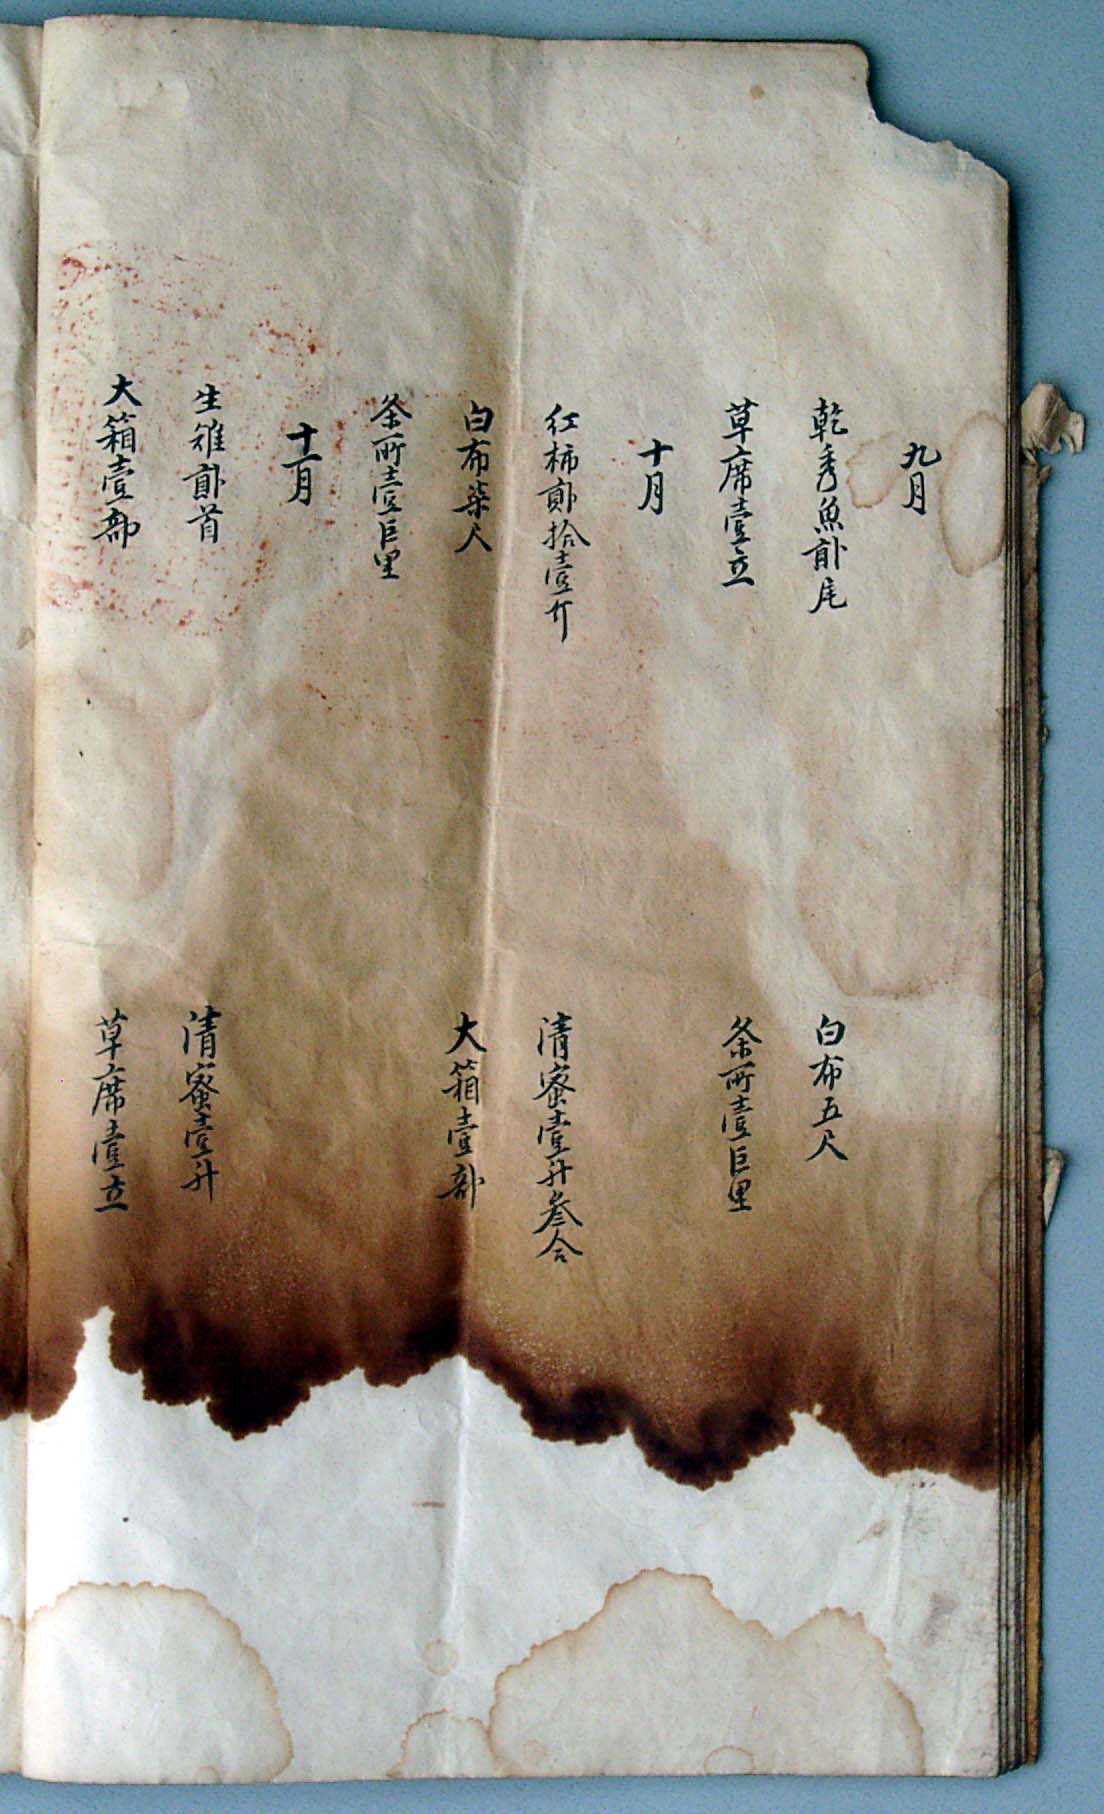 九月
乾秀魚貳尾
白布五尺
草席壹立
条所壹巨里
十月
紅柿貳拾壹介
清蜜壹升參合
白布柒尺
大箱壹部
条所壹巨里
十一月
生雉貳首
清蜜壹升
大箱壹部
草席壹立